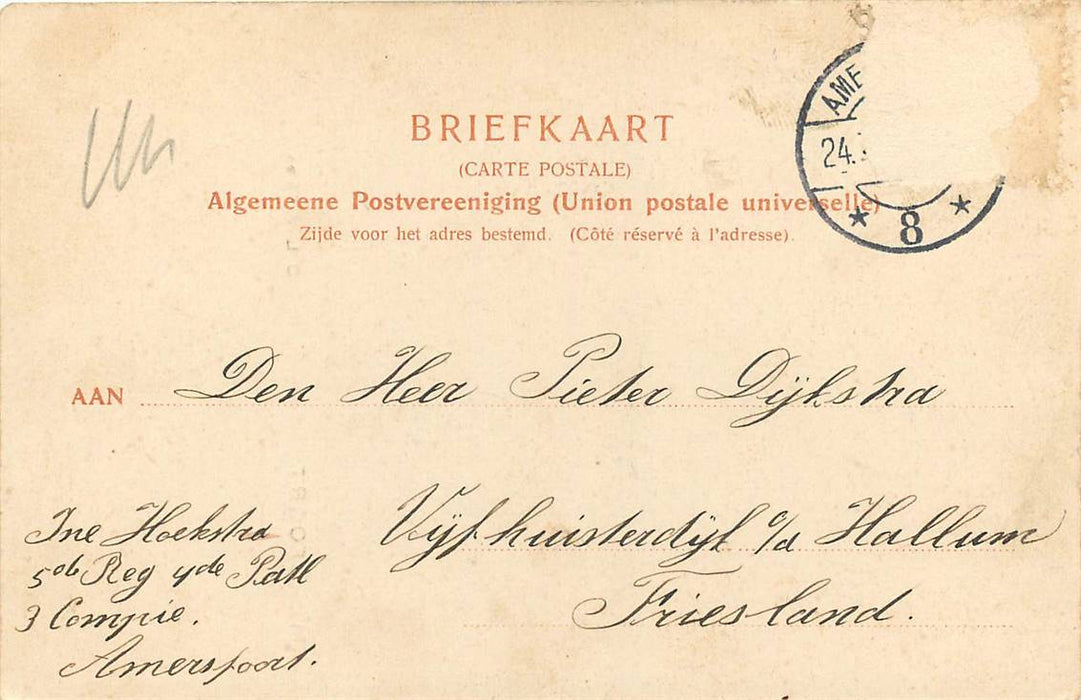 BRIEFKAART
(CARTE POSTALE)
Algemeene Postvereeniging (Union postale universelle)
Zijde voor het adres bestemd. (Côté réservé à l'adresse).
AME
24.
8
AAN Den Heer Pieter Dijkstra
Vijfhuisterdijk a/d Hallum
Friesland.
Jne Hoekstra
5de Reg 4de Batl
3 Compie.
Amersfoort.